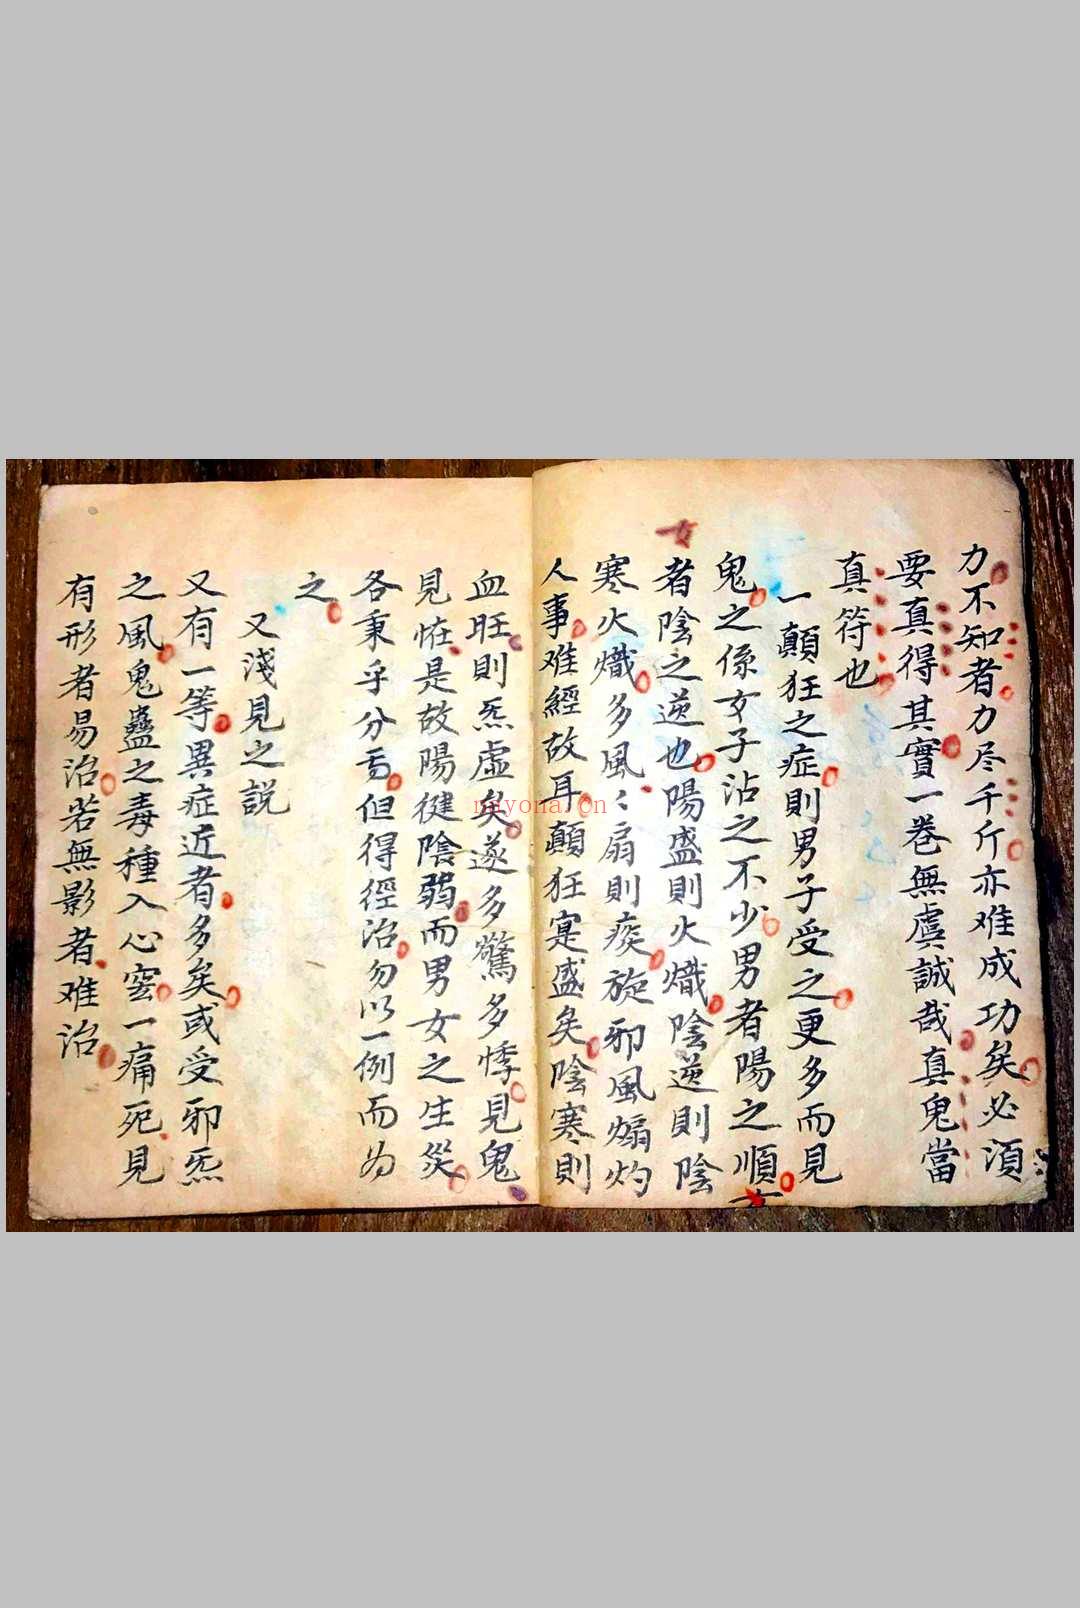 力不知者力尽千斤亦难成功矣必須
要真得其實一巻無虞誠哉真鬼當
真符也
一顛狂之症則男子受之更多而見
鬼之係女子沾之不少男者陽之順
女
者陰之逆也陽盛則火熾陰逆則陰
寒火熾多風〻扇則痰旋邪風煽灼
人事难經故耳顛狂寔盛矣陰寒則
血旺則炁虛矣遂多驚多悸見鬼
見恠是故陽健陰弱而男女之生災
各秉乎分但得徑治勿以一例而为
之
又淺見之説
又有一等異症近者多矣或受邪炁
之風鬼蠱之毒種入心窒一痛死見
有形者易治若無影者难治
mayona.cn